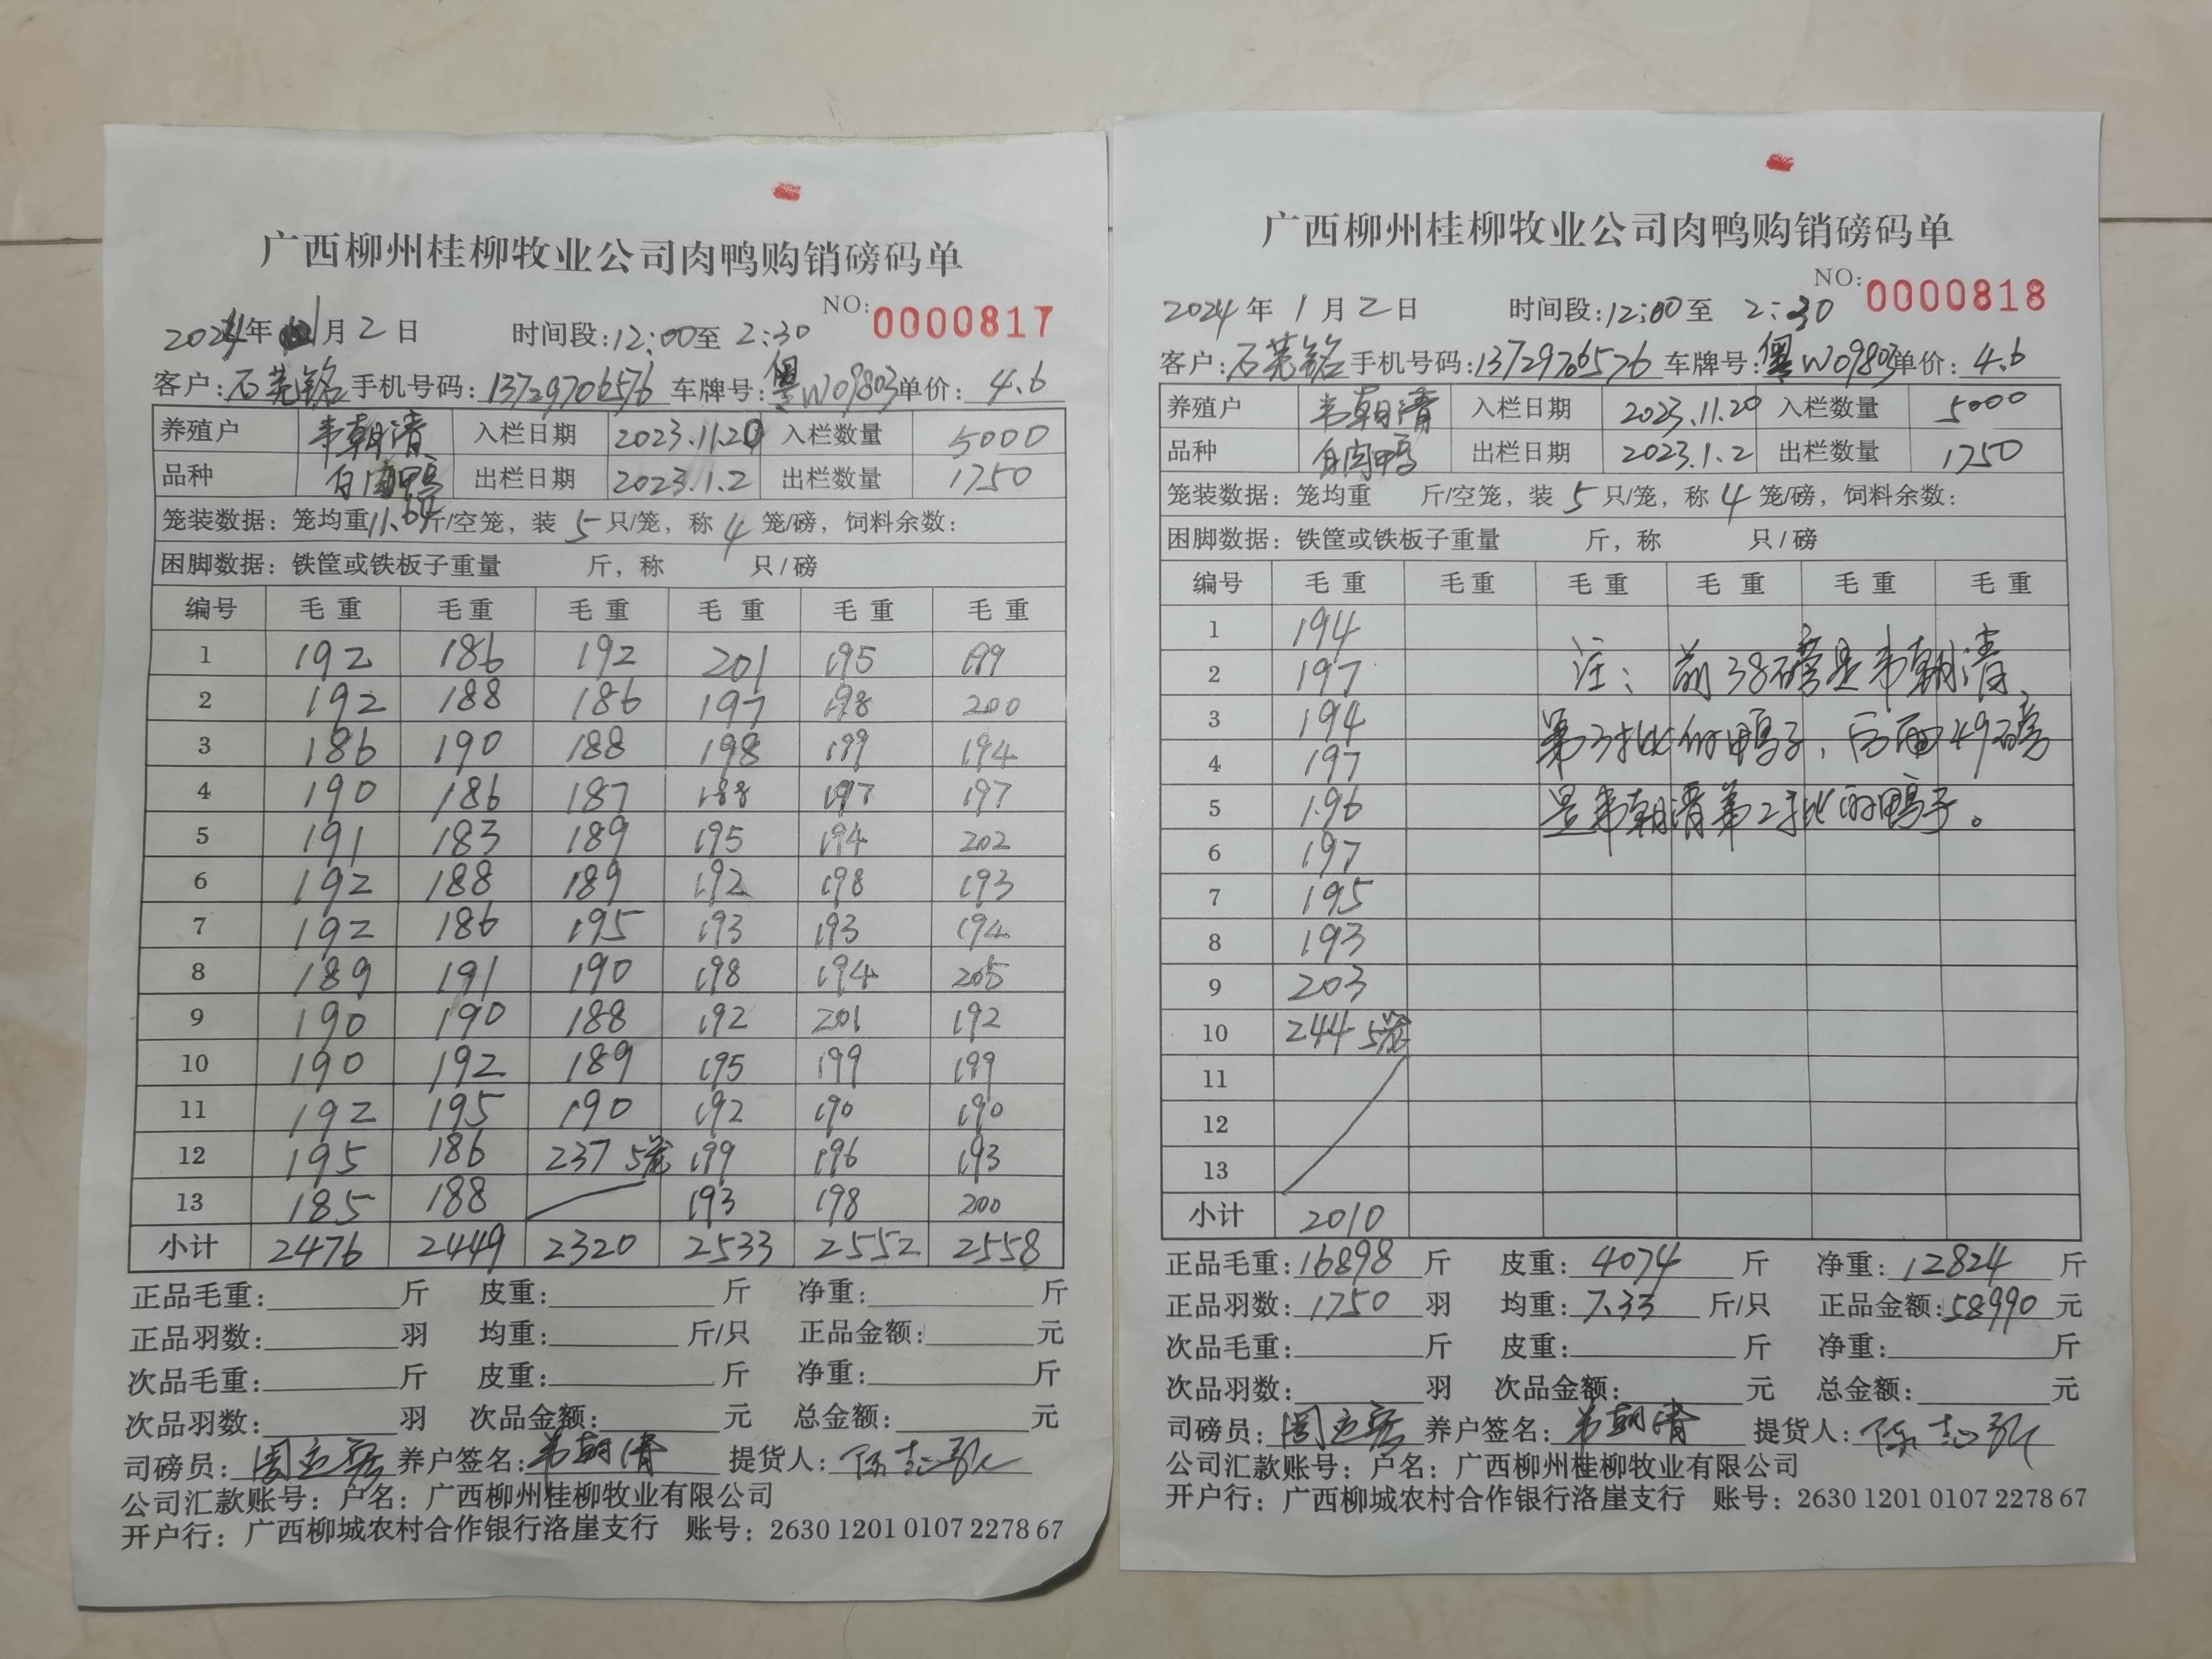 广西柳州桂柳牧业公司肉鸭购销磅码单
NO: 0000817
2024年 1月 2日 时间段:12:00至 2:30
客户:石莞铭 手机号码:13729706576 车牌号:粤W09803 单价: 4.6
养殖户 韦朝清 入栏日期 2023.11.20 入栏数量 5000
品种 白肉鸭 出栏日期 2023.1.2 出栏数量 1750
笼装数据: 笼均重11.64斤/空笼, 装 5 只/笼, 称 4 笼/磅, 饲料余数:
困脚数据: 铁筐或铁板子重量 斤, 称 只/磅
编号 毛重 毛重 毛重 毛重 毛重 毛重
1 192 186 192 201 195 199
2 192 188 186 197 198 200
3 186 190 188 198 199 194
4 190 186 187 188 197 197
5 191 183 189 195 194 202
6 192 188 189 192 198 193
7 192 186 195 193 193 194
8 189 191 190 198 194 205
9 190 190 188 192 201 192
10 190 192 189 195 199 199
11 192 195 190 192 190 190
12 195 186 237 5笼 199 196 193
13 185 188 193 198 200
小计 2476 2449 2320 2533 2552 2558
正品毛重: 斤 皮重: 斤 净重: 斤
正品羽数: 羽 均重: 斤/只 正品金额: 元
次品毛重: 斤 皮重: 斤 净重: 斤
次品羽数: 羽 次品金额: 元 总金额: 元
司磅员: 养户签名: 韦朝清 提货人:
公司汇款账号: 户名: 广西柳州桂柳牧业有限公司
开户行: 广西柳城农村合作银行洛崖支行 账号: 2630 1201 0107 2278 67
广西柳州桂柳牧业公司肉鸭购销磅码单
NO: 0000818
2024年 1月 2日 时间段:12:00至 2:30
客户:石莞铭 手机号码:13729706576 车牌号:粤W09803 单价: 4.6
养殖户 韦朝清 入栏日期 2023.11.20 入栏数量 5000
品种 白肉鸭 出栏日期 2023.1.2 出栏数量 1750
笼装数据: 笼均重 斤/空笼, 装 5 只/笼, 称 4 笼/磅, 饲料余数:
困脚数据: 铁筐或铁板子重量 斤, 称 只/磅
编号 毛重 毛重 毛重 毛重 毛重 毛重
1 194
2 197 注: 前38磅是韦朝清
3 194 第3批的鸭子, 后面49磅
4 197
5 196 是韦朝清第2批的鸭子。
6 197
7 195
8 193
9 203
10 244 5笼
11
12
13
小计 2010
正品毛重: 16898 斤 皮重: 4074 斤 净重: 12824 斤
正品羽数: 1750 羽 均重: 7.33 斤/只 正品金额: 58990 元
次品毛重: 斤 皮重: 斤 净重: 斤
次品羽数: 羽 次品金额: 元 总金额: 元
司磅员: 养户签名: 韦朝清 提货人:
公司汇款账号: 户名: 广西柳州桂柳牧业有限公司
开户行: 广西柳城农村合作银行洛崖支行 账号: 2630 1201 0107 2278 67